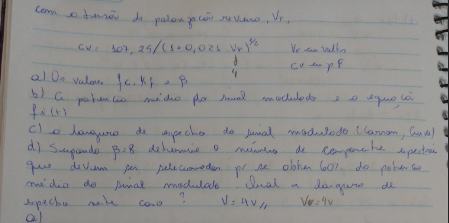 com a tensão de polarização reversa, Vr.
Cv = 107,25/(1+0,02 Vr)^1/2 Vr em volts
Cv em pF
a) Os valores fc, Kf e β
b) a potencia médio do sinal modulado e a equação
c) a largura de espectro do sinal modulado (Carson,
d) Supondo β=8 determine o número de componente espectra
que deviam ser selecionados pr se obter 60% da potencia
médio do sinal modulado. Qual a largura de
espectro neste caso? V=4V Vr=4V
a)